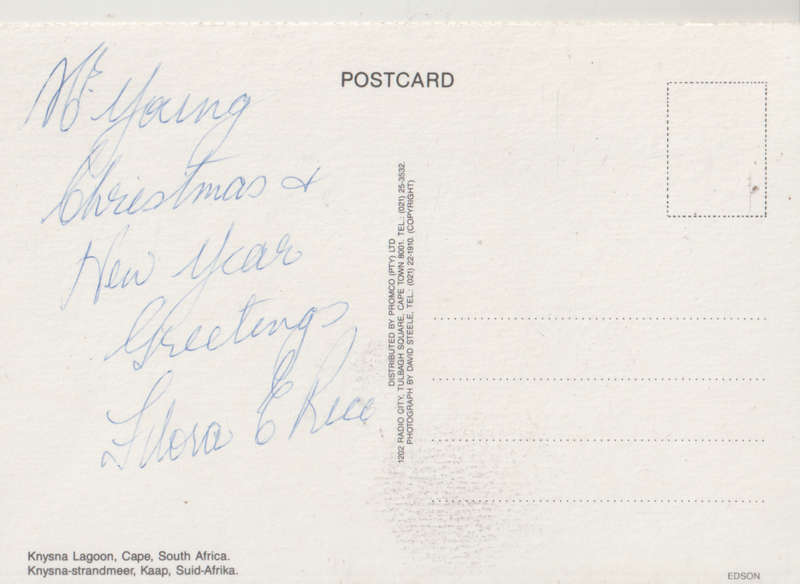 POSTCARD
Mr Young
Christmas &
New Year
Greetings
Flora E Rice
DISTRIBUTED BY PROMCO (PTY) LTD
1202 RADIO CITY, TULBAGH SQUARE, CAPE TOWN 8001. TEL.: (021) 25-3532.
PHOTOGRAPH BY DAVID STEELE, TEL.: (021) 22-1910. (COPYRIGHT)
Knysna Lagoon, Cape, South Africa.
Knysna-strandmeer, Kaap, Suid-Afrika.
EDSON